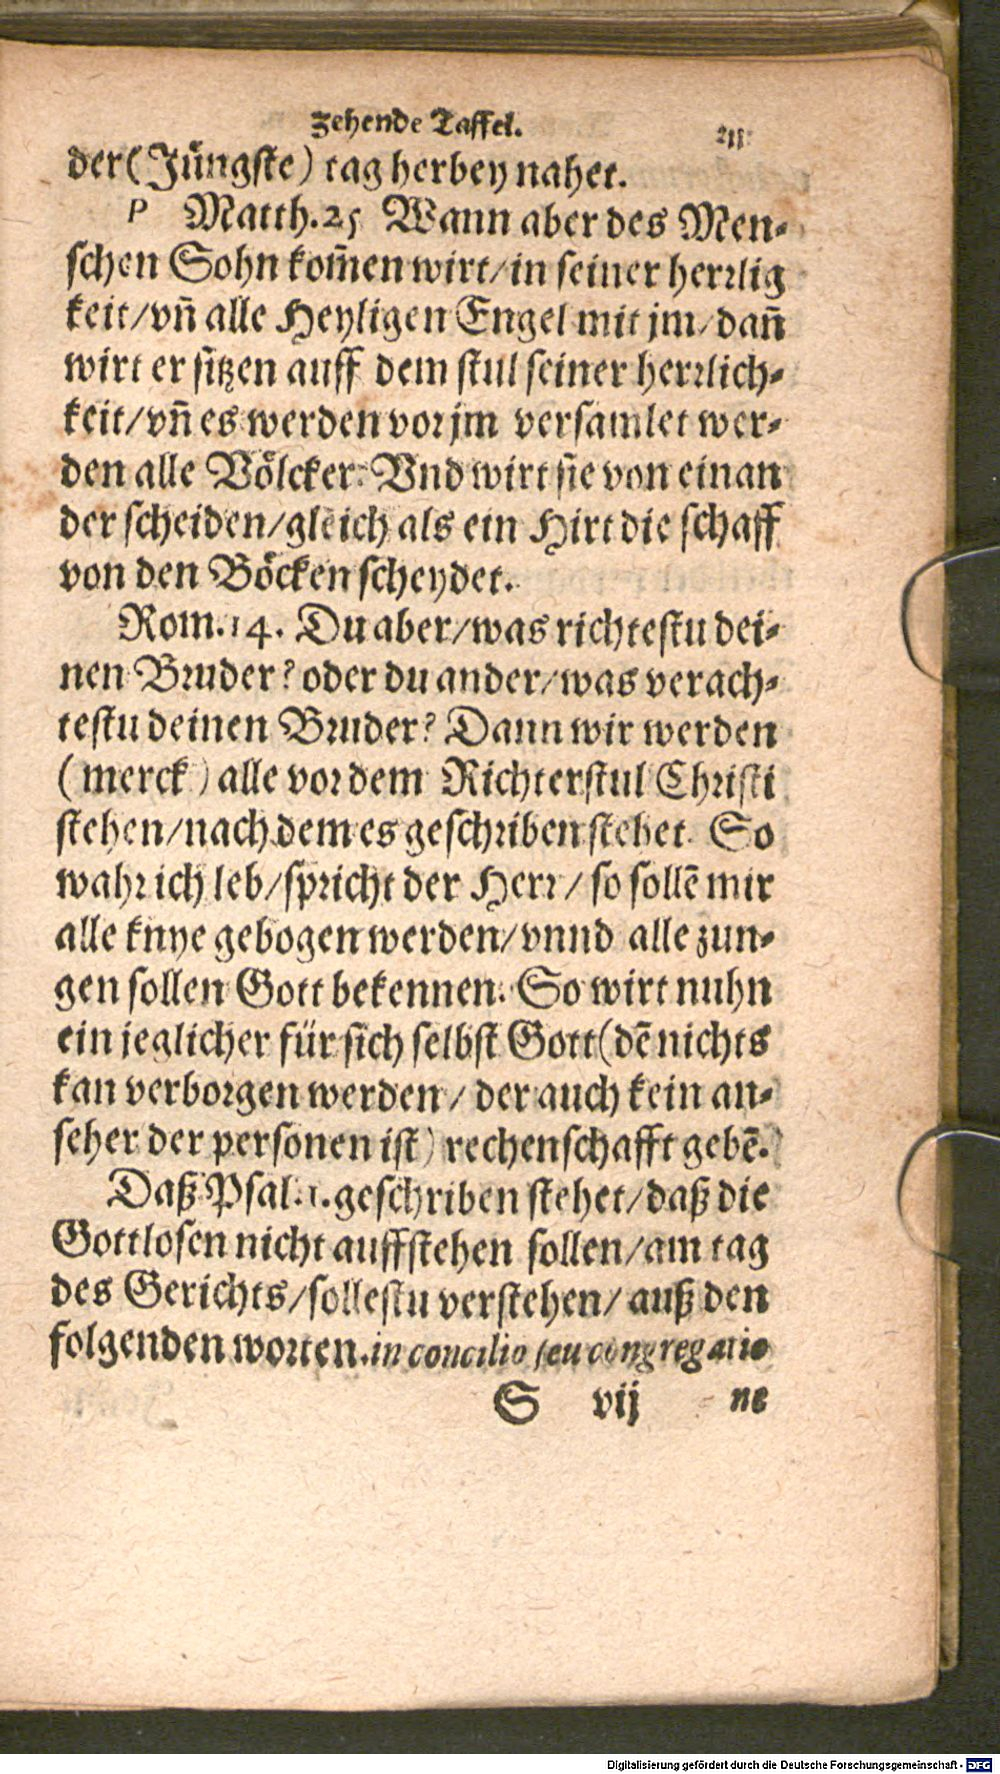 Zehende Taffel.
der (Jüngste) tag herbey nahet.
P Matth. 25 Wann aber des Men-
schen Sohn kom̃en wirt/ in seiner herrlig
keit/ vñ alle Heyligen Engel mit jm/ dañ
wirt er sitzen auff dem stul seiner herrlich-
keit/ vñ es werden vor jm versamlet wer-
den alle Völcker: Vnd wirt sie von einan
der scheiden/ gleich als ein Hirt die schaff
von den Böcken scheydet.
Rom. 14. Du aber/ was richtestu dei-
nen Bruder? oder du ander/ was verach-
testu deinen Bruder? Dann wir werden
(merck) alle vor dem Richterstul Christi
stehen/ nach dem es geschriben stehet. So
wahr ich leb/ spricht der Herr/ so sollē mir
alle knye gebogen werden/ vnnd alle zun-
gen sollen Gott bekennen. So wirt nuhn
ein jeglicher für sich selbst Gott (dē nichts
kan verborgen werden/ der auch kein an-
seher der personen ist) rechenschafft gebē.
Daß Psal. 1. geschriben stehet/ daß die
Gottlosen nicht auffstehen sollen/ am tag
des Gerichts/ sollestu verstehen/ auß den
folgenden worten. in concilio seu congregatio
S vij ne
Digitalisierung gefördert durch die Deutsche Forschungsgemeinschaft - DFG